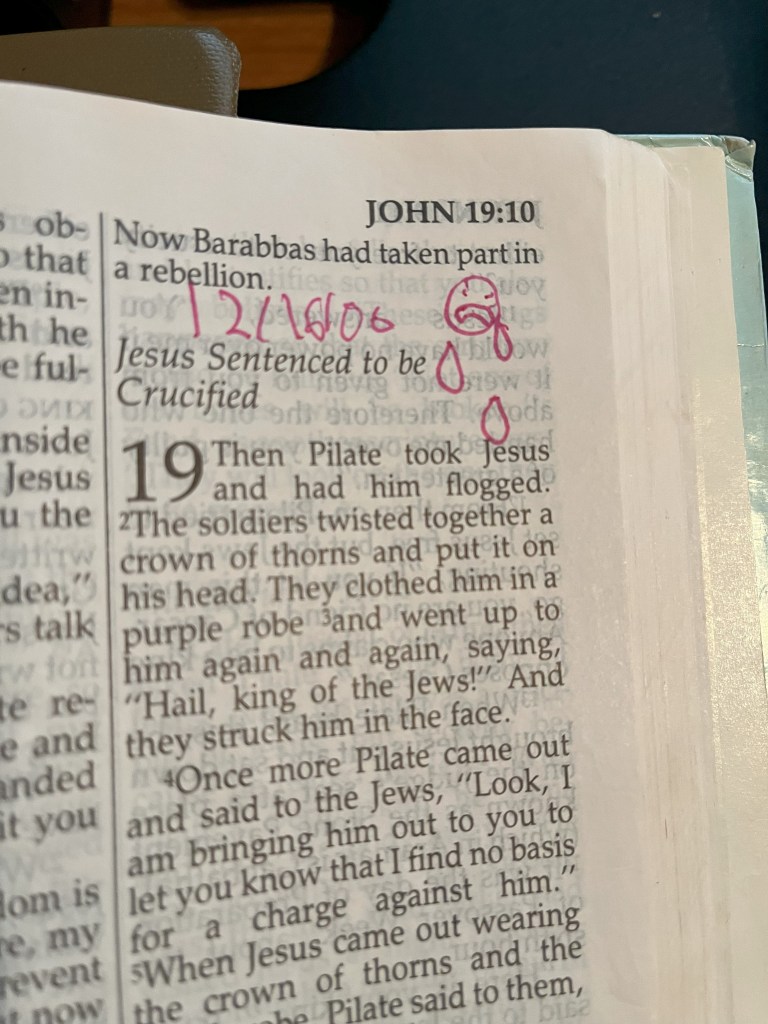 s ob-
that
en in-
th he
e ful-
nside
Jesus
u the
dea,"
s talk
te re-
e and
anded
it you
dom is
re, my
revent
now
JOHN 19:10
Now Barabbas had taken part in
a rebellion.
12/16/06
Jesus Sentenced to be
Crucified
19 Then Pilate took Jesus
and had him flogged.
2The soldiers twisted together a
crown of thorns and put it on
his head. They clothed him in a
purple robe 3and went up to
him again and again, saying,
"Hail, king of the Jews!" And
they struck him in the face.
4Once more Pilate came out
and said to the Jews, "Look, I
am bringing him out to you to
let you know that I find no basis
for a charge against him."
5When Jesus came out wearing
the crown of thorns and the
Pilate said to them,